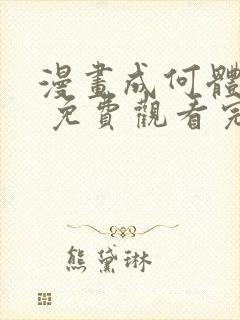 漫畫成何體
免費觀看完
熊黛琳